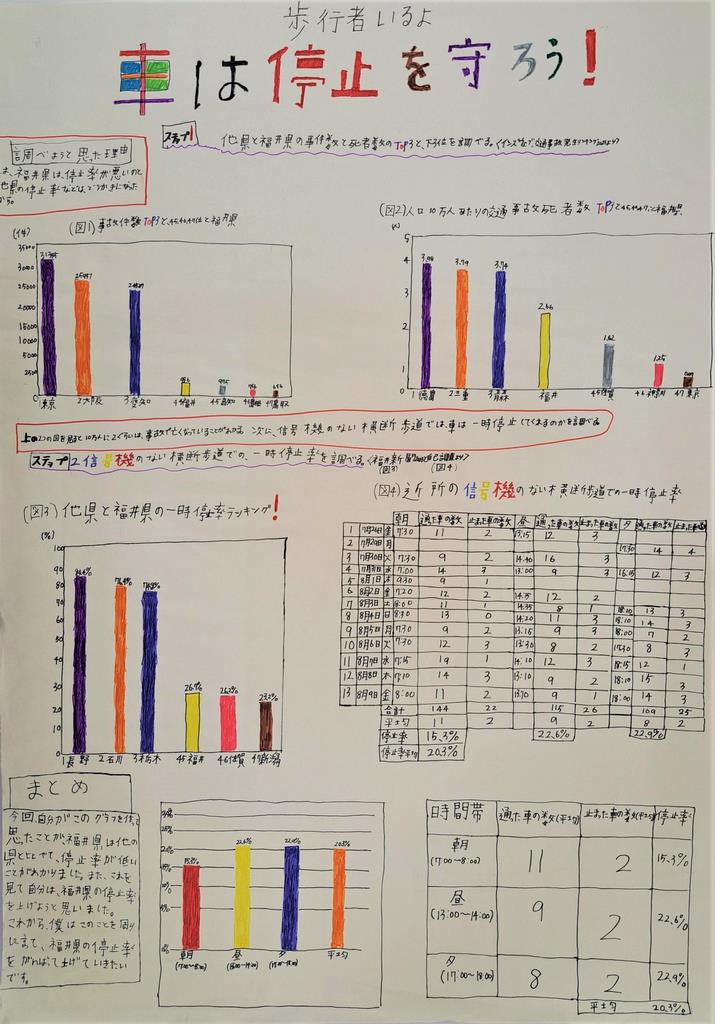 歩行者いるよ
車は停止を守ろう!
ステップ1 他県と福井県の事件数と死者数のTOP3と、下3位を調べる。
調べようと思った理由
は、福井県は、停止率が悪いのと
他県の停止率などは、どうかきになった
から。
(図1)事故件数TOP3と、45,46,47位と福井県
(件)
35000
30000
25000
20000
15000
10000
5000
2500
0
1東京 2大阪 3愛知 福井 45高知 46島根 47鳥取
(図2)人口10万人あたりの交通事故死者数TOP3と45,46,47、と福井県
5
4
3
2
1
0
3.98 3.79 3.74 2.46 1.62 1.25
1徳島 2三重 3青森 福井 45佐賀 46神奈川 47東京
上の2つの図を見ると10万人に2ぐらいは、事故で亡くなっていることがわかる。次に、信号機のない横断歩道では、車は一時停止してくれるのかを調べる。
ステップ2 信号機のない横断歩道での、一時停止率を調べる。
(図3) (図4)
(図3)他県と福井県の一時停止率ランキング!
(%)
100
90
80
70
60
50
40
30
20
10
0
84.4% 76.4% 74.8% 26.7% 26.2% 23.2%
1長野 2石川 3栃木 45福井 46佐賀 47新潟
(図4)近所の信号機のない横断歩道での一時停止率
朝 通った車の数 止まった車の数 昼 通った車の数 止まった車の数 夕 通った車の数 止まった車の数
1 7月26日 金 7:30 11 2 13:15 12 3
2 7月29日 月 17:30 14 4
3 7月30日 火 7:30 9 2 14:40 16 3
4 7月31日 水 7:00 14 3 13:00 9 3 16:15 12 3
5 8月1日 木 9:30 9 1
6 8月2日 金 7:20 12 2 14:35 12 2
7 8月3日 土 8:00 11 1 14:35 8 1 18:10 13 3
8 8月4日 日 8:30 13 0 14:20 11 3 18:10 14 3
9 8月5日 月 7:30 9 2 13:15 9 3 18:00 7 2
10 8月6日 火 7:30 12 3 13:30 8 2 17:30 8 3
11 8月7日 水 7:15 19 1 14:10 12 3 18:15 12 1
12 8月8日 木 7:10 14 3 13:10 9 2 18:10 15 3
13 8月9日 金 8:00 11 2 9 1 18:00 14 3
合計 144 22 115 26 109 25
平均 11 2 9 2 8 2
停止率 15.3% 22.6% 22.9%
停止率平均 20.3%
まとめ
今回、自分がこのグラフを作って
思ったことが、福井県は他の
県とくらべて、停止率が低い
ことがわかりました。また、これを
見て自分は、福井県の停止率
を上げようと思いました。
これから、僕はこのことを周り
に言て、福井県の停止率
をがんばって上げていきたい
です。
15.3% 22.6% 22.9% 20.3%
朝 昼 夕 平均
(7:00~8:00) (13:00~14:00) (17:00~18:00)
時間帯 通った車の数(平均) 止まった車の数(平均) 停止率
朝 (7:00~8:00) 11 2 15.3%
昼 (13:00~14:00) 9 2 22.6%
夕 (17:00~18:00) 8 2 22.9%
平均 20.3%